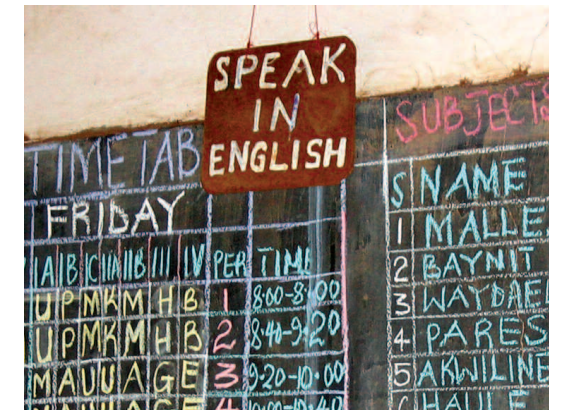 SPEAK
IN
ENGLISH
TIMETAB
FRIDAY
IA IB IC IIA IIB III IV PER TIME
U P M K M H B 1 8:00-8:
U P M K M H B 2 8:40-9:20
M A U U A G E 3 9:20-10:00
4 10:00-10:40
SUBJECTS
S NAME
1 MALLE
2 BAYNIT
3 WAYDAEL
4 PARES
5 AKWILINE